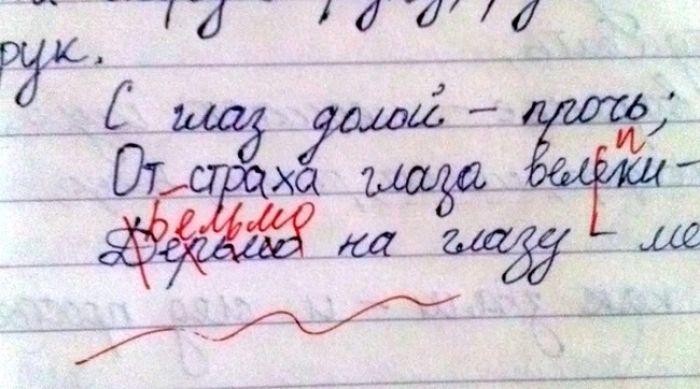 рук.
С глаз долой – прочь;
и
От страха глаза велеки –
бельмо
Дерьмо на глазу – ме